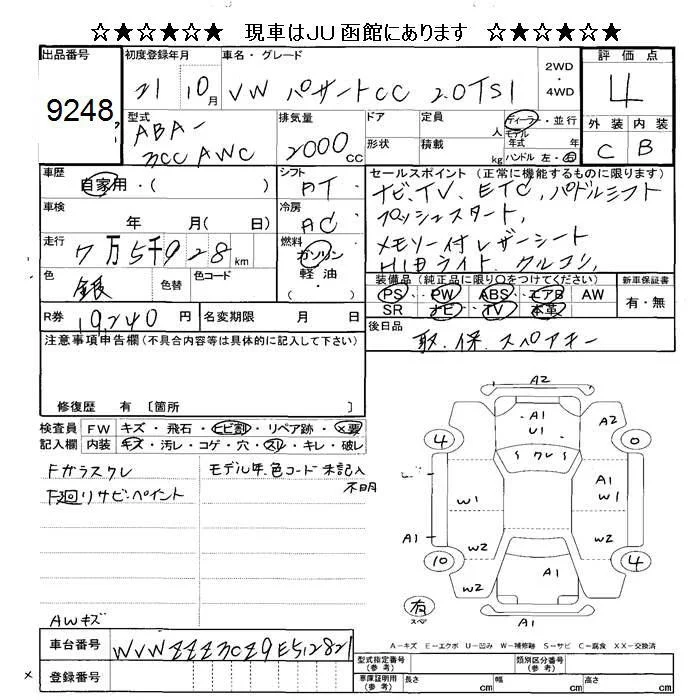 ☆★☆★☆★ 現車はJU函館にあります ☆★☆★☆★
出品番号 初度登録年月 車名・グレード 2WD ・ 4WD 評価点
9248 21 10月 VW パサートCC 2.0TSI 4
型式 排気量 ドア 定員 人 ディーラー・並行 外装 内装
ABA-3CCAWC 2000cc 形状 積載 kg モデル年式 年 ハンドル 左・右 C B
車歴 シフト セールスポイント (正常に機能するものに限ります)
自家用・( ) AT ナビ、TV、ETC、パドルシフト
車検 冷房 プッシュスタート、
年 月( 日) AC メモリー付レザーシート
走行 燃料 HIDライト、クルコン、
7万5千928km ガソリン・軽油・( )
色 色替 色コード 装備品(純正品に限り○をつけてください) 新車保証書
銀 PS・PW・ABS・エアB AW 有・無
SR ナビ・TV・本革
R券 19,240円 名変期限 月 日 後日品
取.保.スペアキー
注意事項申告欄(不具合内容等は具体的に記入して下さい)
修復歴 有 〔箇所 〕
検査員記入欄 FW キズ・飛石・ヒビ割・リペア跡・×要
内装 キズ・汚レ・コゲ・穴・スレ・キレ・破レ
Fガラスワレ モデル年.色コード未記入
F廻リサビ.ペイント 不明
AWキズ
A2
A1
U1
A2
4
0
ワレ
A1
W1
W1
A1
W2
W2
10
4
W2
A1
有
スペ
A1
A-キズ E-エクボ U-凹み W-補修跡 S-サビ C-腐食 XX-交換済
車台番号 WVWZZZ3CZ9E512821
× 登録番号
型式指定番号(参考) 類別区分番号(参考)
車庫証明用(参考) 長さ cm 幅 cm 高さ cm